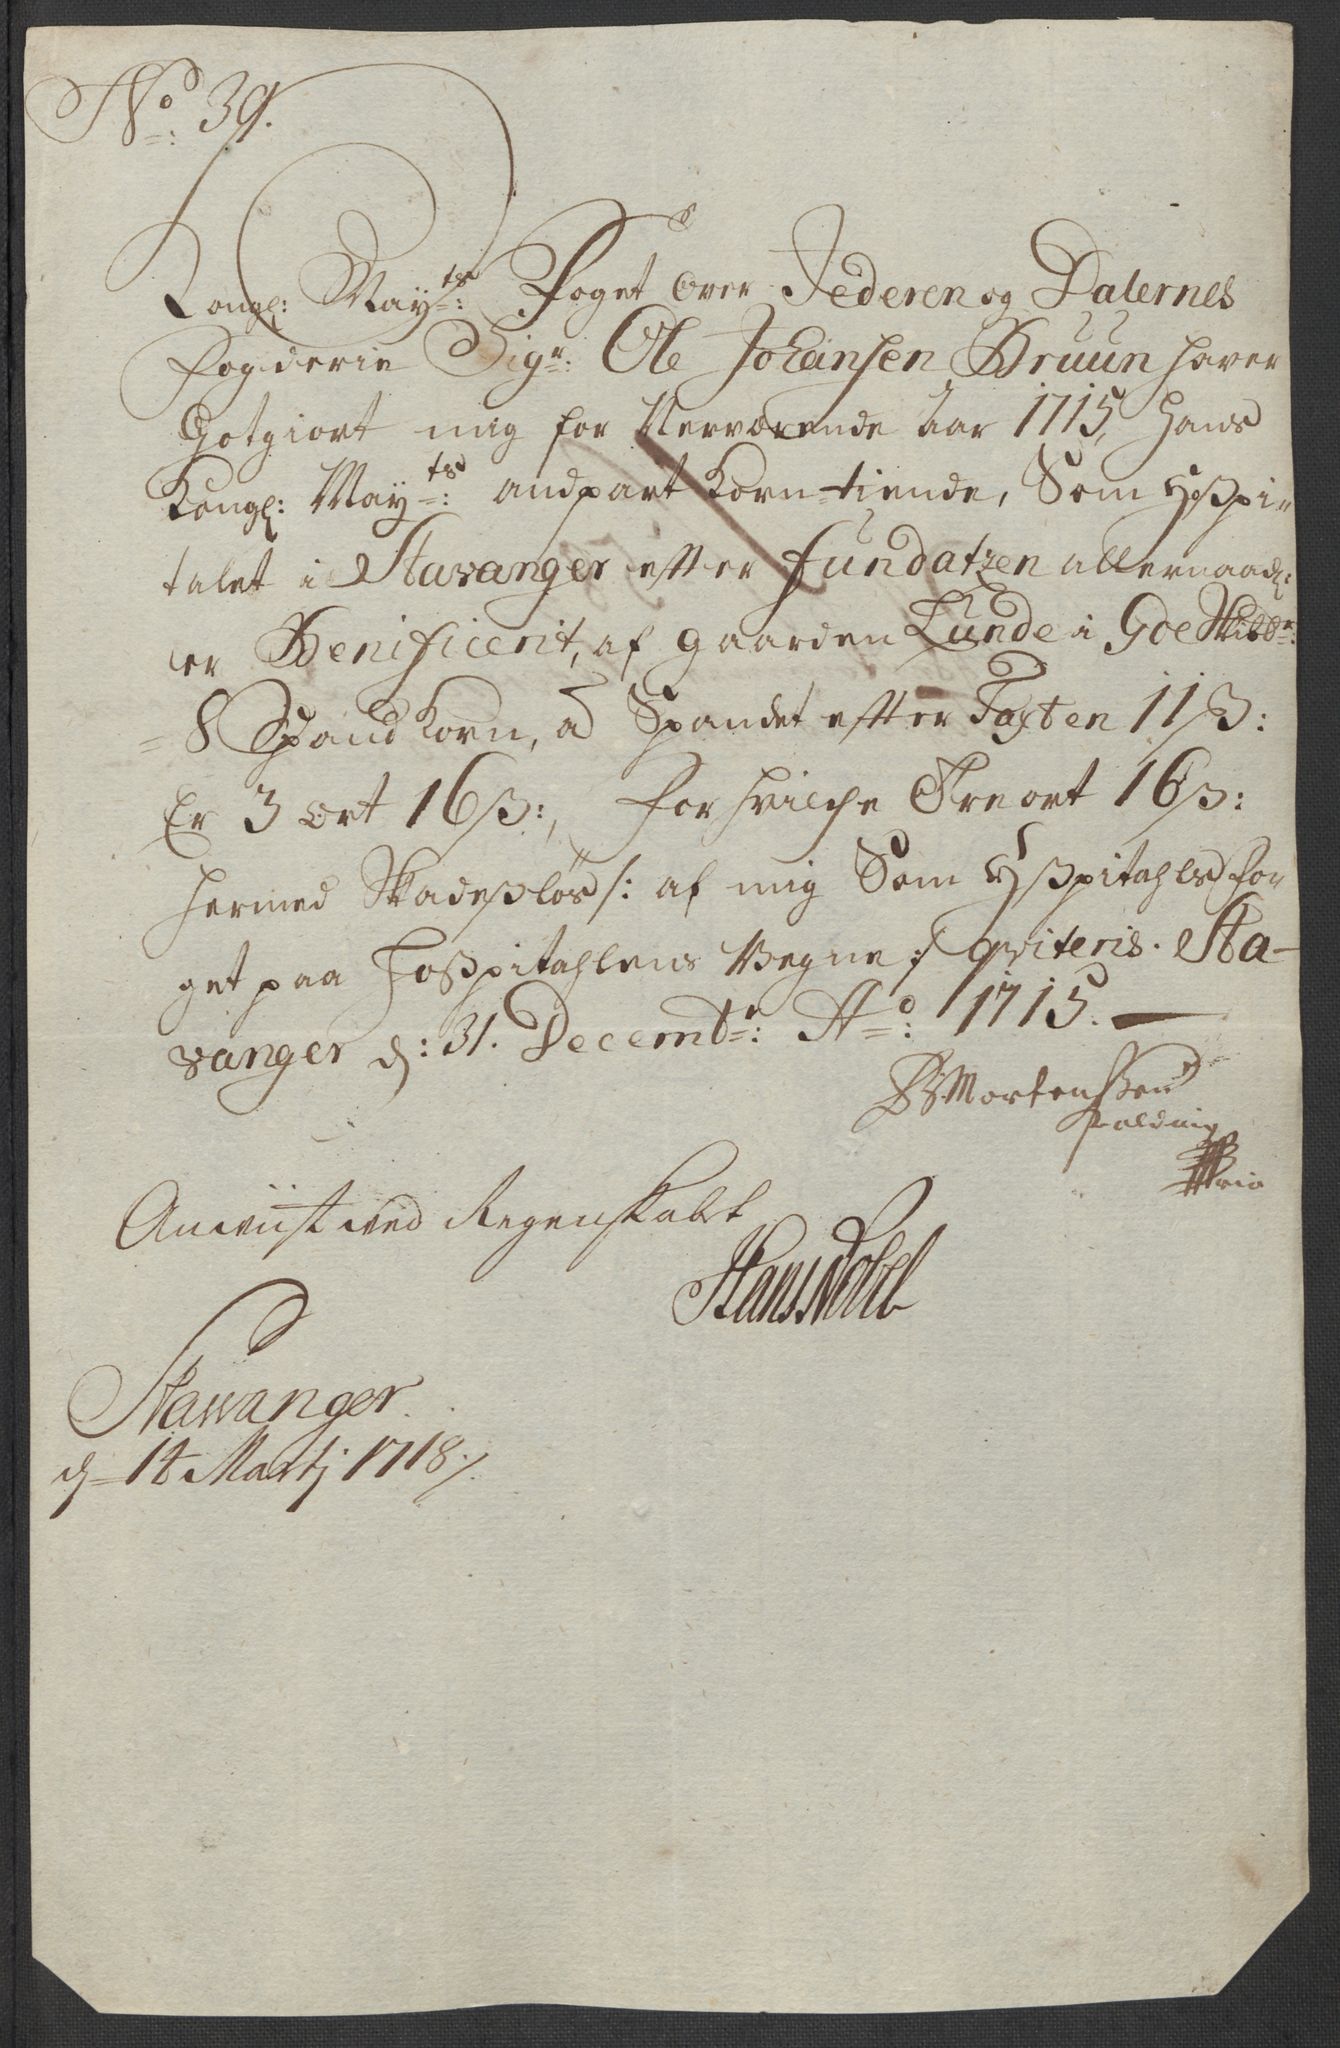 No: 39.
Kongl: Mayts: Foget over Jederen og Dalernes
Fogderie Sigr: Ole Johansen Bruun hafver
Gotgiort mig for Nerværende Aar 1715, Hans
Kongl: Mayts: andpart Korn-tiende, Som Hoßpi-
talet i Stavanger efter fundatzen allernaadl:
er Benificerit, af gaarden Lunde i Goe Skibbr:
= 8 Spand Korn, a Spandet efter Taxten 11 ß:
Er 3 ort 16 ß:, for hvilche Tre ort 16 ß:
hermed Skadesløs /: af mig Som Hoßpitahls for
get paa Hoßpitahlens Vegne :/ qviteris. Sta-
vanger d: 31. Decembr: Ao: 1715.
Mortenßen
Anviist ved Regenskabet
Hans Nobel
Stavanger
d 14 Martj 1718 /.